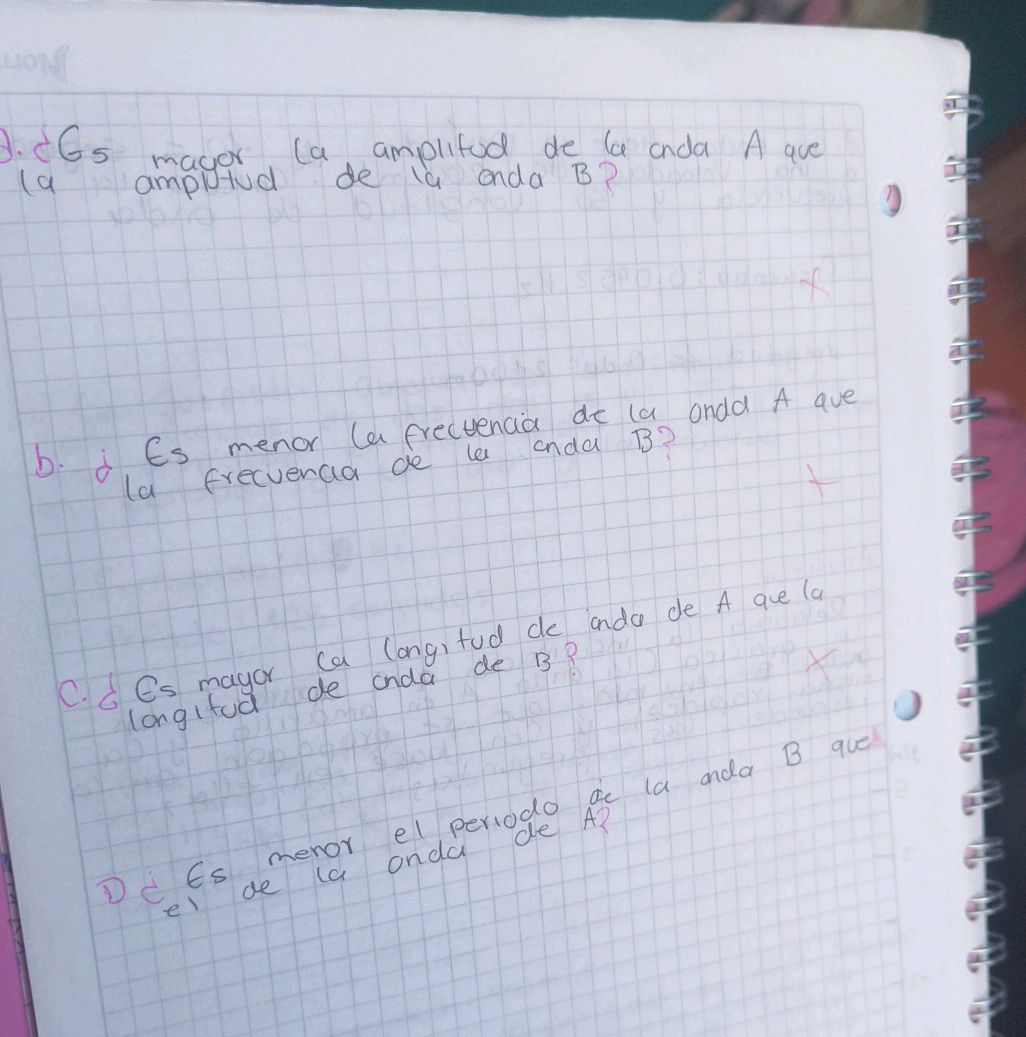 a. ¿Es mayor la amplitud de la onda A que
la amplutud de la onda B?
b. ¿ Es menor la frecuencia de la onda A que
la frecuencia de la onda B?
C. ¿ Es mayor la longitud de onda de A que la
longitud de onda de B?
D ¿ Es menor el periodo de la onda B que
el de la onda de A?